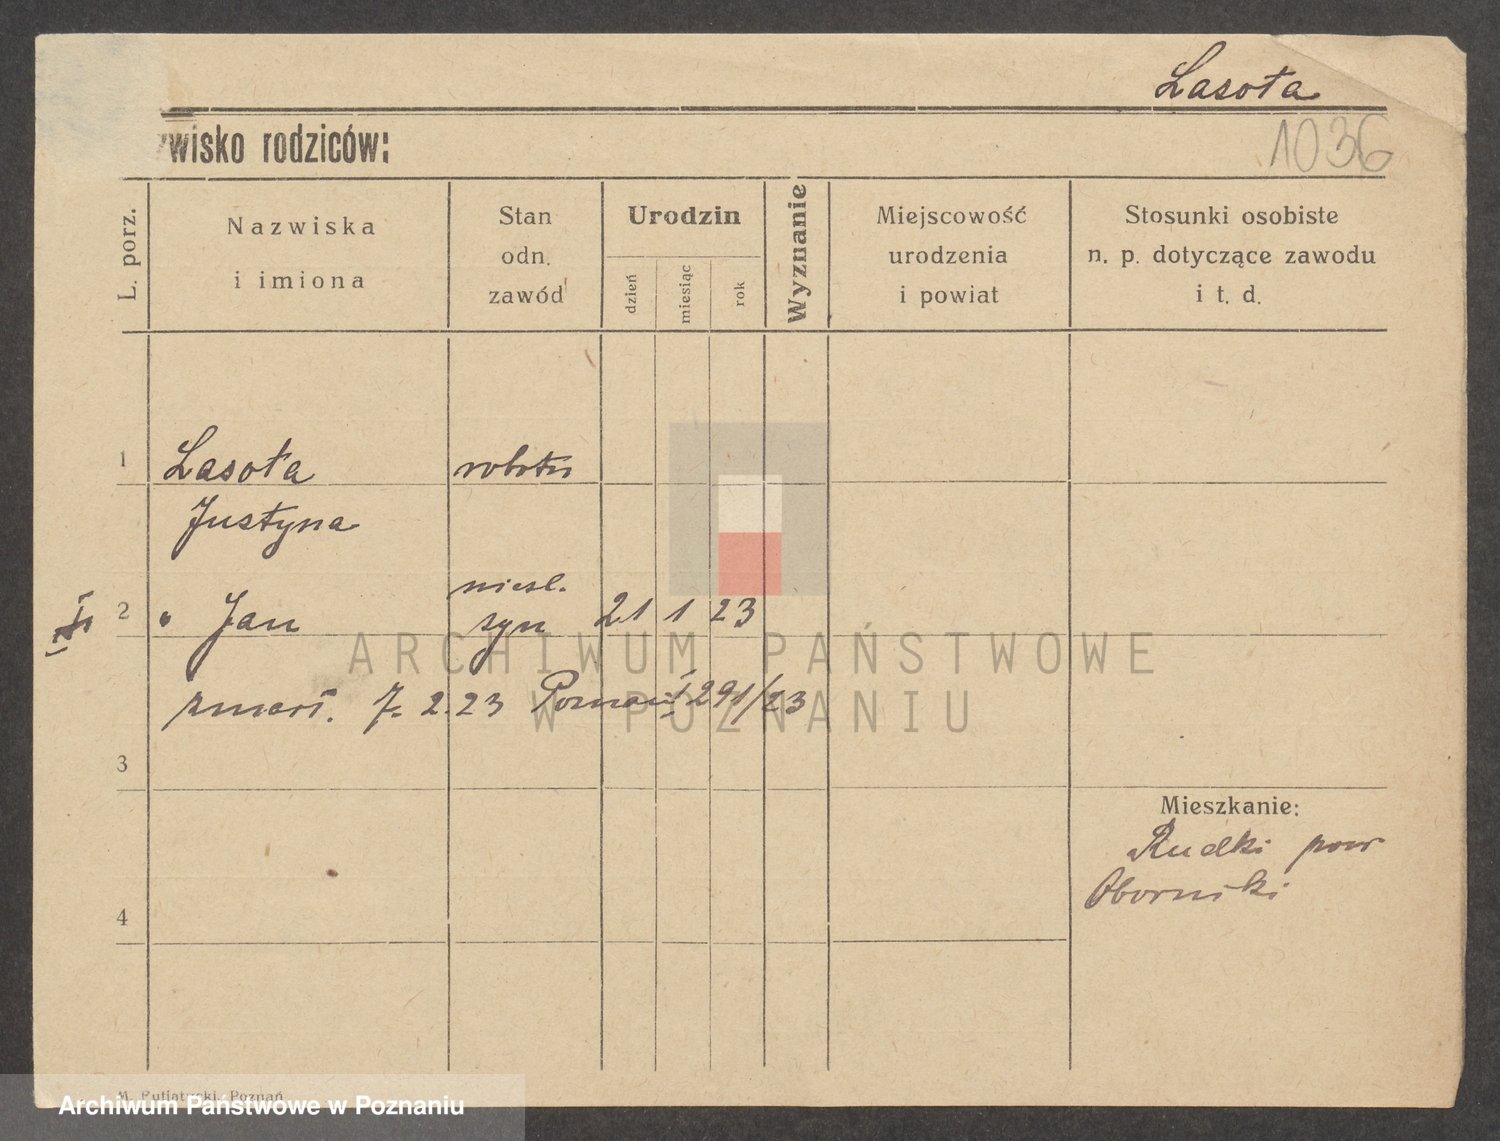 Lasota
zwisko rodziców:
1036
L. porz.
Nazwiska
i imiona
Stan
odn.
zawód
Urodzin
dzień
miesiąc
rok
Wyznanie
Miejscowość
urodzenia
i powiat
Stosunki osobiste
n. p. dotyczące zawodu
i t. d.
1 Lasota robotn
Justyna
niesl.
2 " Jan syn 21 1 23
zmarł. 7. 2. 23 Poznań 291/23
3
Mieszkanie:
Rudki pow
Oborniki
4
ARCHIWUM PAŃSTWOWE
W POZNANIU
M. Putiatycki, Poznań
Archiwum Państwowe w Poznaniu